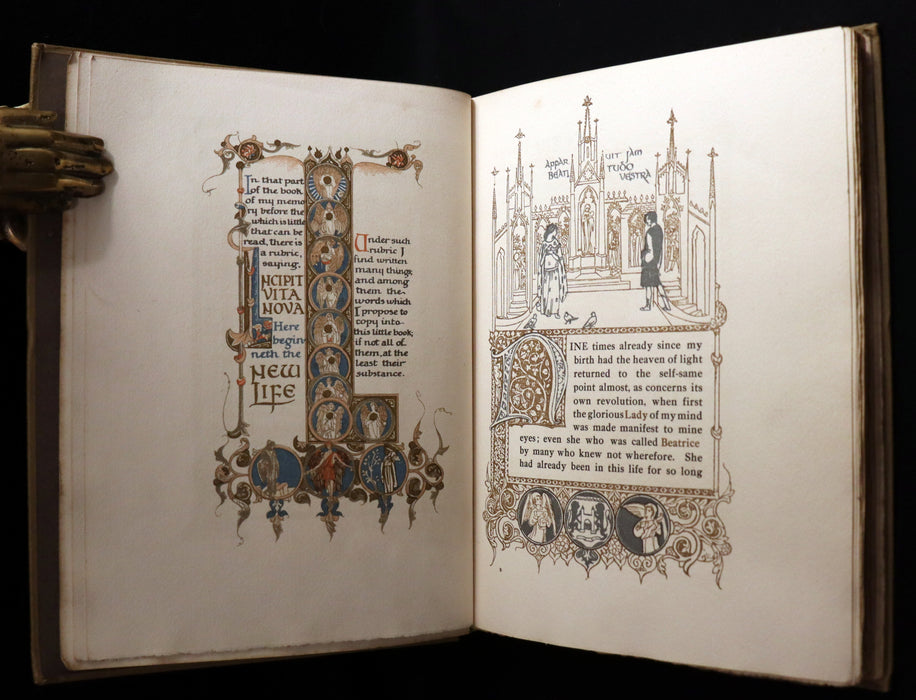 In that part
of the book
of my memo
ry before the
which is little
that can be
read, there is
a rubric,
saying,
INCIPIT
VITA
NOVA
Here
begin-
neth the
NEW
LIFE
Under such
rubric I
find written
many things;
and among
them the
words which
I propose to
copy into
this little book;
if not all of
them, at the
least their
substance.
APPAR UIT JAM
BEAN TUDO VESTRA
NINE times already since my
birth had the heaven of light
returned to the self-same
point almost, as concerns its
own revolution, when first
the glorious Lady of my mind
was made manifest to mine
eyes; even she who was called Beatrice
by many who knew not wherefore. She
had already been in this life for so long